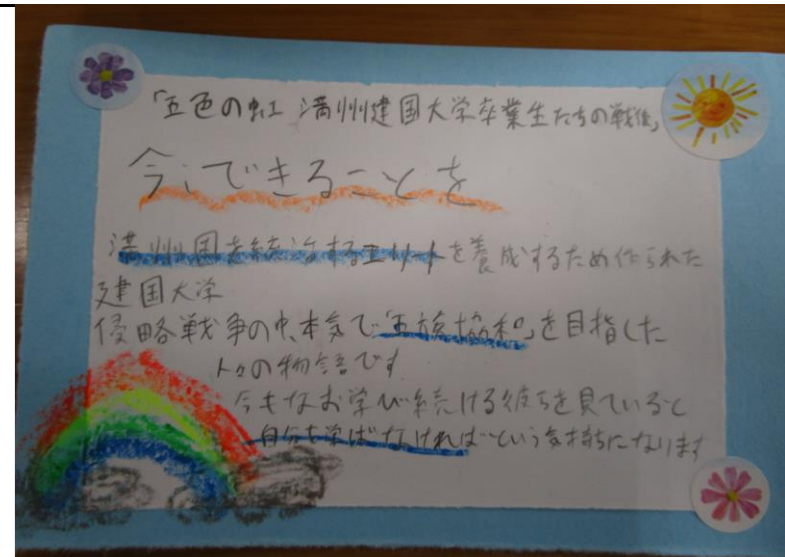 「五色の虹 満州建国大学卒業生たちの戦後」
今、できることを
満州国を統治するエリートを養成するため作られた
建国大学
侵略戦争の中、本気で「五族協和」を目指した
人々の物語です
今もなお学び続ける彼らを見ていると
自分も学ばなければ…という気持ちになります